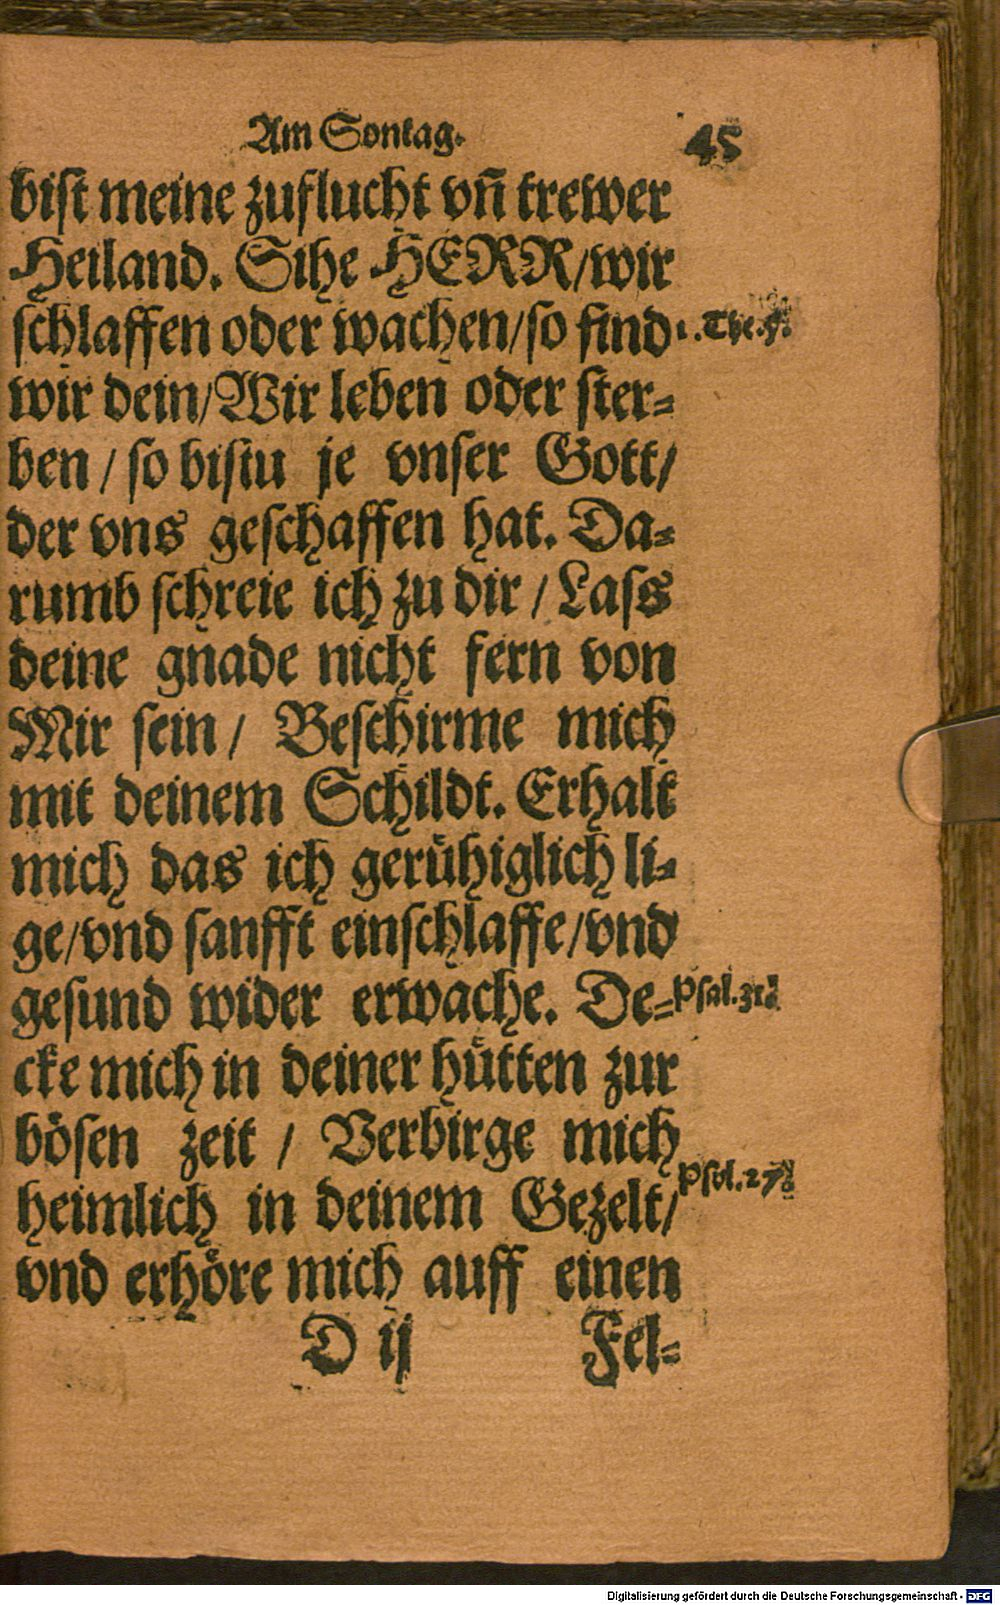 Am Sontag. 45
bist meine zuflucht vn̄ trewer
Heiland. Sihe HERR/wir
schlaffen oder wachen/so sind 1. The. 5.
wir dein/Wir leben oder ster⸗
ben / so bistu je vnser Gott/
der vns geschaffen hat. Da⸗
rumb schreie ich zu dir / Lass
deine gnade nicht fern von
Mir sein / Beschirme mich
mit deinem Schildt. Erhalt
mich das ich gerühiglich li⸗
ge/vnd sanfft einschlaffe/vnd
gesund wider erwache. De⸗ Psal. 31.
cke mich in deiner hütten zur
bösen zeit / Verbirge mich
heimlich in deinem Gezelt/ Psal. 27.
vnd erhöre mich auff einen
D ij Fel⸗
Digitalisierung gefördert durch die Deutsche Forschungsgemeinschaft - DFG